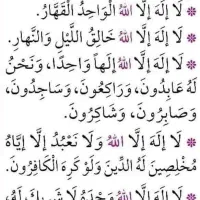 * لَا إِلَهَ إِلَّا اللهُ الْوَاحِدُ الْقَهَّارُ.
* لَا إِلَهَ إِلَّا اللهُ خَالِقُ اللَّيْلِ وَالنَّهَارِ.
* لَا إِلَهَ إِلَّا اللهُ إِلَهاً وَاحِدًا، وَنَحْنُ
لَهُ عَابِدُونَ، وَرَاكِعُونَ، وَسَاجِدُونَ،
وَصَابِرُونَ، وَشَاكِرُونَ.
* لَا إِلَهَ إِلَّا اللهُ وَلَا نَعْبُدُ إِلَّا إِيَّاهُ
مُخْلِصِينَ لَهُ الدِّينَ وَلَوْ كَرِهَ الْكَافِرُونَ.
* لَا إِلَهَ إِلَّا اللهُ وَحْدَهُ لَا شَرِيكَ لَهُ،